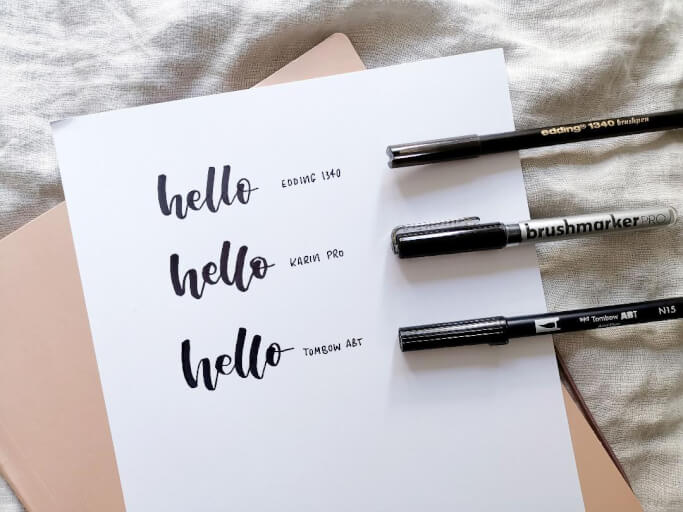 hello EDDING 1340
hello KARIN PRO
hello TOMBOW ABT
edding® 1340 brushpen
brushmarkerPRO
Tombow ABT N15